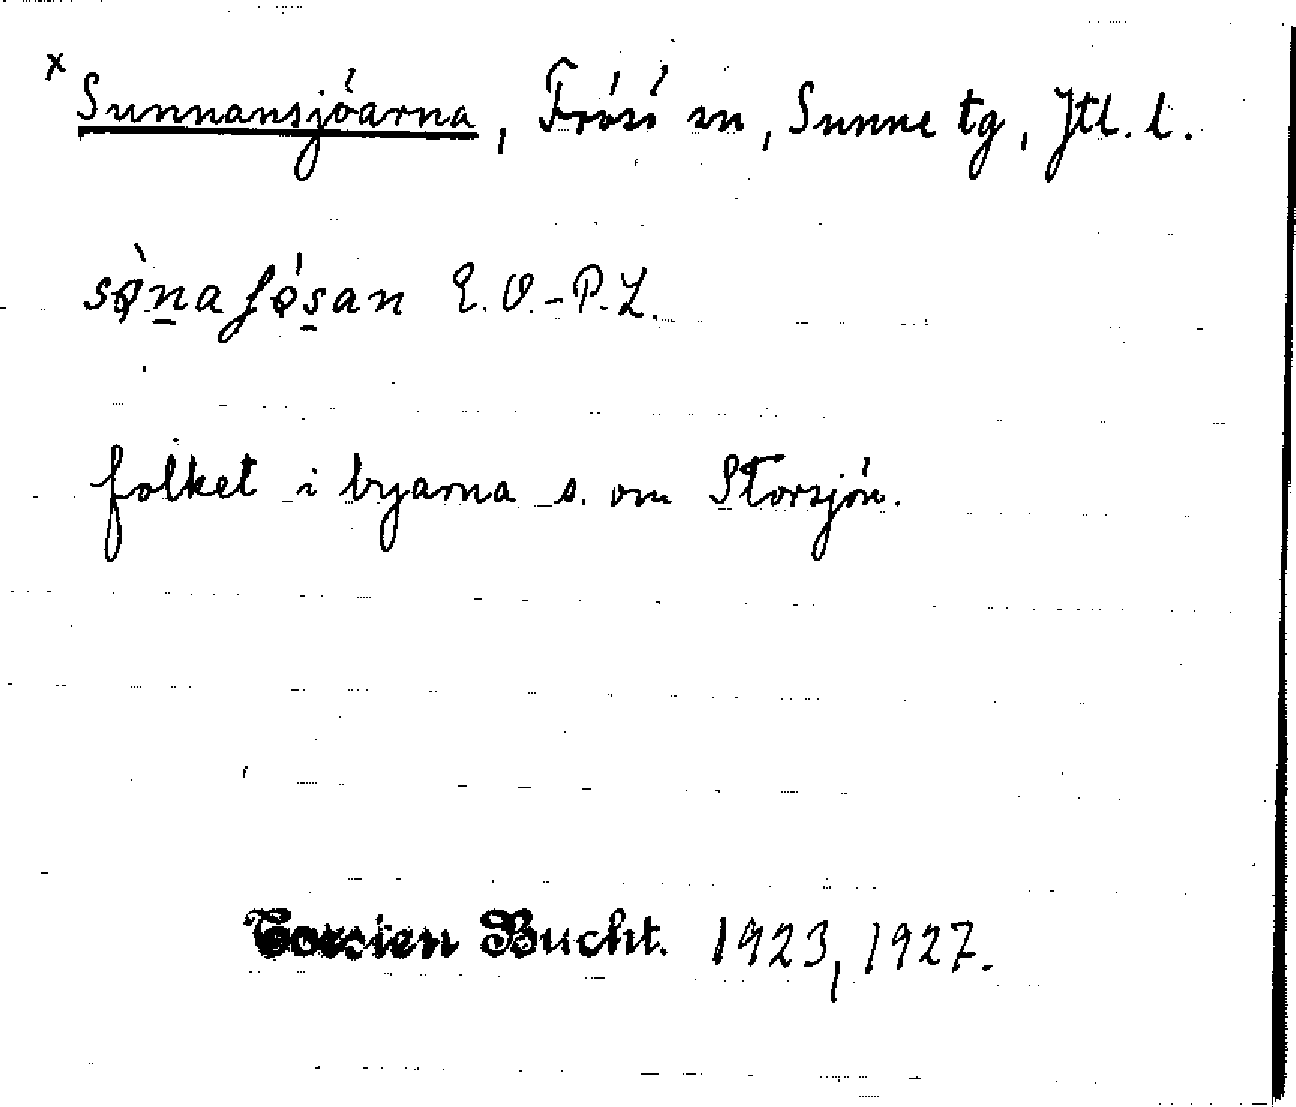 x Sunnansjöarna, Frösö sn, Sunne tg, Jtl. l.
sǫ̀na ʃǫ́san E.O.-P.Z.
folket i byarna s. om Storsjön.
Torsten Bucht. 1923, 1927.